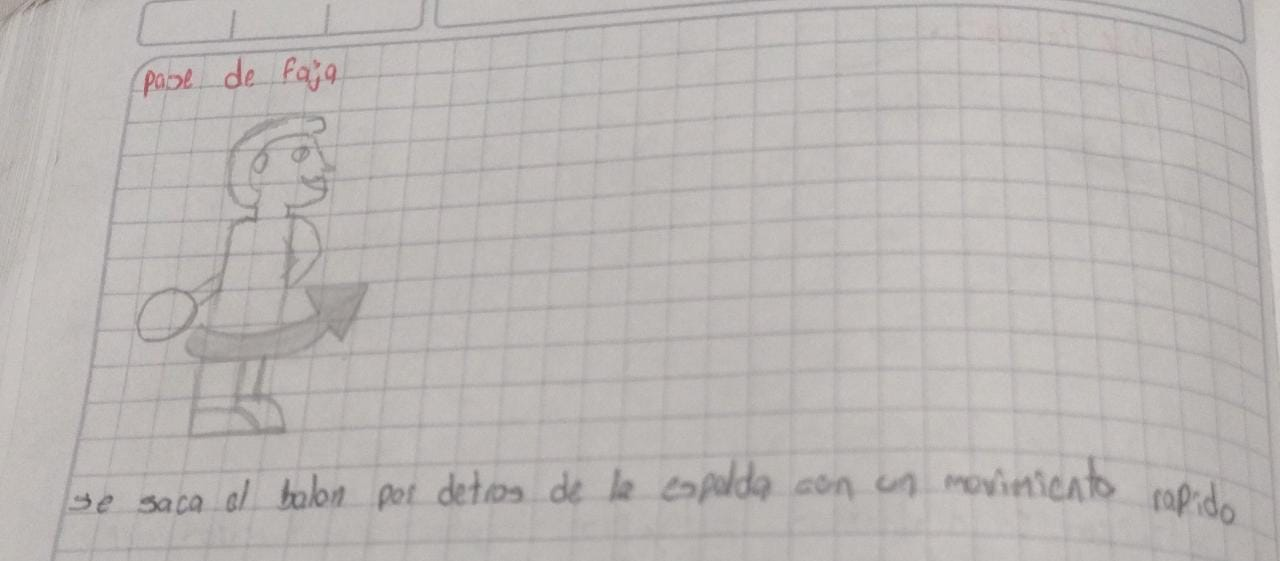 pase de faja
se saca el balon por detras de la espalda con un movimiento rapido